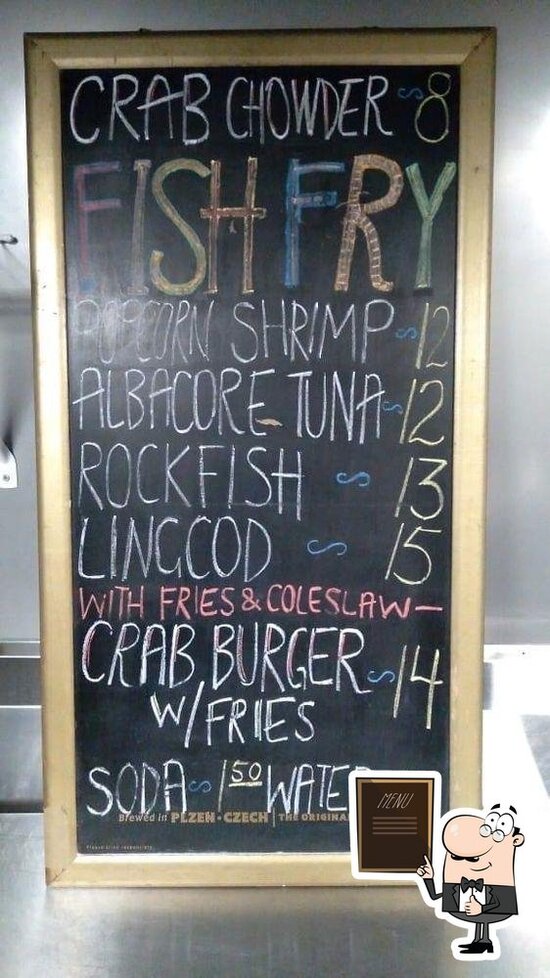 CRAB CHOWDER $8
FISH FRY
POPCORN SHRIMP $12
ALBACORE TUNA $12
ROCKFISH $13
LINGCOD $15
WITH FRIES & COLESLAW—
CRAB BURGER $14
W/FRIES
SODA $1 50 WATE
Brewed in PLZEN • CZECH | THE ORIGINA
MENU